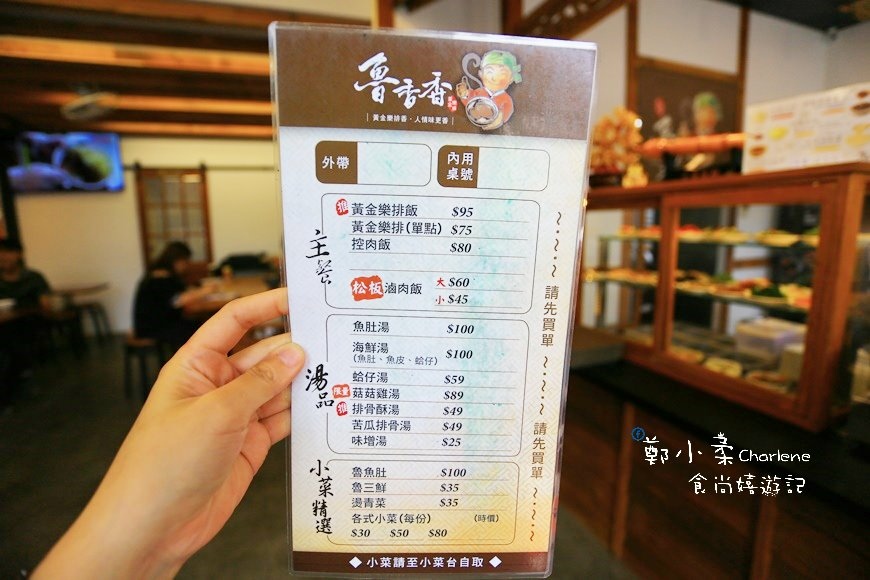 魯香香
黃金樂排香・人情味更香
外帶
內用桌號
主餐
推 黃金樂排飯 $95
黃金樂排(單點) $75
控肉飯 $80
松板滷肉飯 大 $60
小 $45
湯品
魚肚湯 $100
海鮮湯 $100
(魚肚、魚皮、蛤仔)
蛤仔湯 $59
限量 菇菇雞湯 $89
推 排骨酥湯 $49
苦瓜排骨湯 $49
味增湯 $25
小菜精選
魯魚肚 $100
魯三鮮 $35
燙青菜 $35
各式小菜(每份) (時價)
$30 $50 $80
◆ 小菜請至小菜台自取 ◆
~.~.~ 請先買單 ~.~.~ 請先買單 ~.~.~
鄭小柔Charlene
食尚嬉遊記